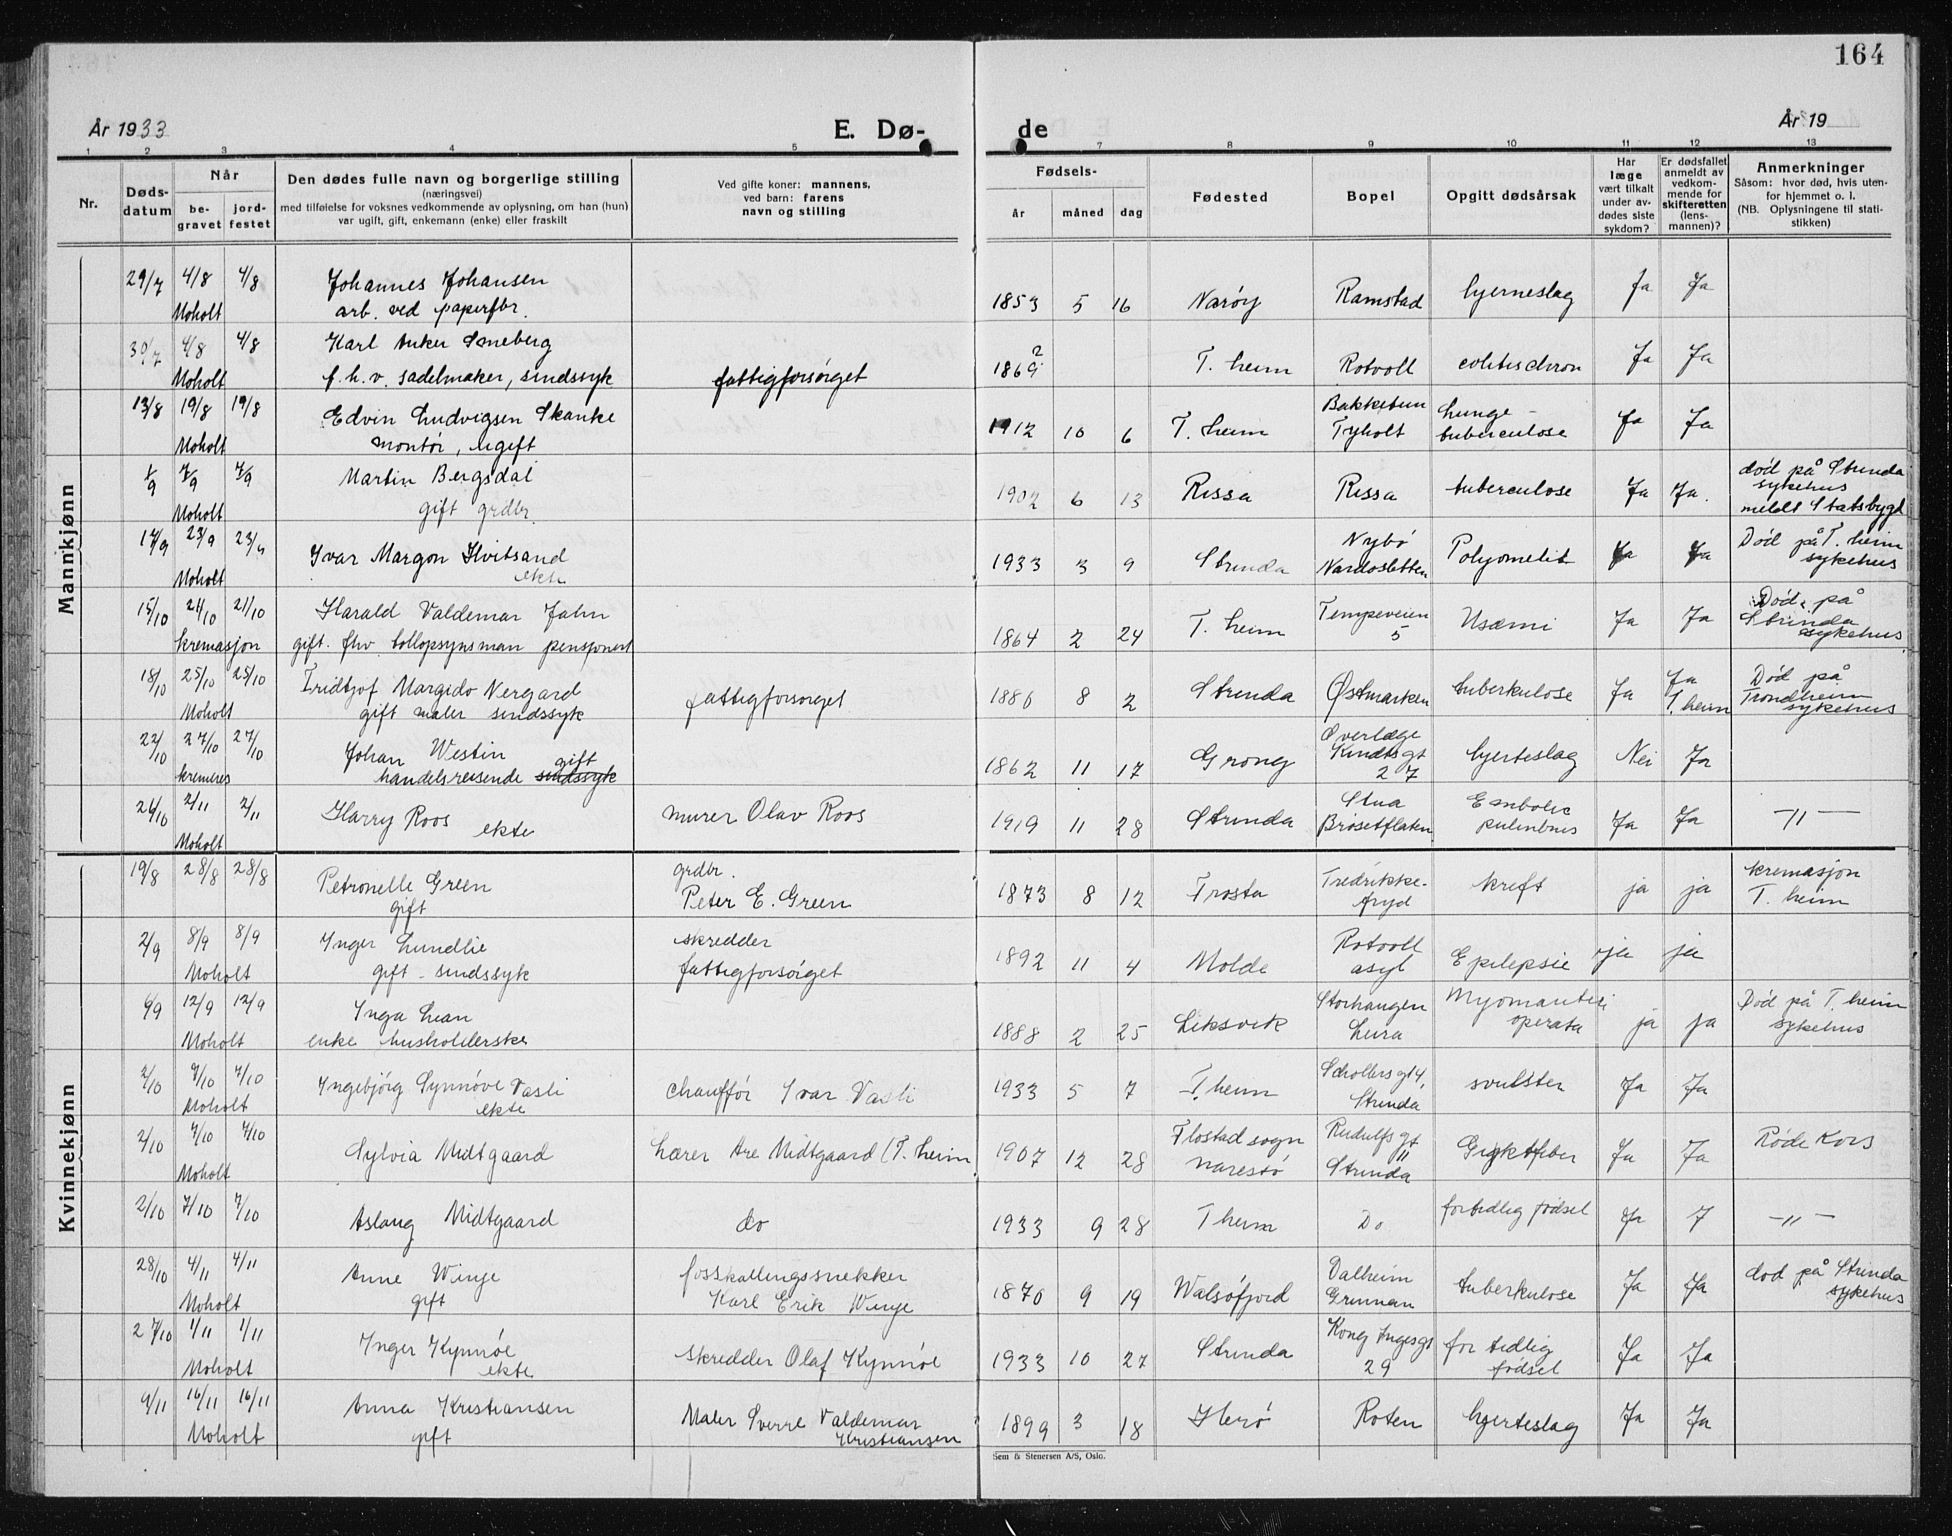 164
År 1933
E. Dø-
de
År 19
1 2 3 4 5 7 8 9 10 11 12 13
Nr.
Døds-
datum
Når
be-
gravet
jord-
festet
Den dødes fulle navn og borgerlige stilling
(næringsvei)
med tilføielse for voksnes vedkommende av oplysning, om han (hun)
var ugift, gift, enkemann (enke) eller fraskilt
Ved gifte koner: mannens,
ved barn: farens
navn og stilling
Fødsels-
år måned dag
Fødested
Bopel
Opgitt dødsårsak
Har
læge
vært tilkalt
under av-
dødes siste
sykdom?
Er dødsfallet
anmeldt av
vedkom-
mende for
skifteretten
(lens-
mannen)?
Anmerkninger
Såsom: hvor død, hvis uten-
for hjemmet o. l.
(NB. Oplysningene til stati-
stikken)
Mannkjønn
29/7 4/8 4/8 Johannes Johansen
Moholt arb. ved paperfbr.
1853 5 16 Narøy Ramstad hjerneslag Ja Ja
30/7 4/8 4/8 Karl Anker Smeberg
Moholt f.h.v. sadelmaker, sindssyk fattigforsørget
1869 ? T. heim Rotvoll colitis chron Ja Ja
13/8 19/8 19/8 Edvin Ludvigsen Skanke
Moholt montør, ugift
1912 10 6 T. heim Bakketun
Tyholt lunge-
tuberculose Ja Ja
1/9 7/9 7/9 Martin Bergsdal
Moholt gift grdbr.
1902 6 13 Rissa Rissa tuberculose Ja Ja. død på Strinda
sykehus
meldt Statsbygd
17/9 23/9 23/9 Ivar Margon Hvitsand
Moholt ekte
1933 3 9 Strinda Nybø
Nardosletten Polyomelit Ja Ja Død på T. heim
sykehus
15/10 21/10 21/10 Harald Valdemar Jahn
kremasjon gift. fhv. tollopsynsman pensjonert
1864 2 24 T. heim Tempeveien
5 Uræmi Ja Ja Død på
Strinda
sykehus
18/10 25/10 25/10 Fridtjof Margido Nergard
Moholt gift maler sindssyk fattigforsørget
1886 8 2 Strinda Østmarken tuberkulose Ja Ja
T. heim Død på
Trondheim
sykehus
22/10 27/10 27/10 Johan Westin
kremeres handelsreisende sindssyk gift
1862 11 17 Grong Overlæge
Kindtsgt
27 hjerteslag Nei Ja
26/10 2/11 2/11 Harry Roos ekte murer Olav Roos
Moholt
1919 11 28 Strinda Stua
Brøsetflaten Embolic
pulmbnus Ja Ja —"—
Kvinnekjønn
19/8 28/8 28/8 Petronelle Green
gift grdbr.
Peter E. Green
1873 8 12 Frosta Fredrikke-
fryd kreft ja ja kremasjon
T. heim
2/9 8/9 8/9 Inger Lundlie
Moholt gift - sindssyk skredder
fattigforsørget
1892 11 4 Molde Rotvoll
asyl Epilepsie ja ja
6/9 12/9 12/9 Inga Lian
Moholt enke husholderske
1888 2 25 Leksvik Storhaugen
Leira operata ja ja Død på T. heim
sykehus
2/10 7/10 7/10 Ingebjørg Synnøve Vasli
Moholt ekte chauffør Ivar Vasli
1933 5 7 T. heim Schollersgt 4,
Strinda svulster Ja Ja
2/10 7/10 7/10 Sylvia Midtgaard Lærer Are Midtgaard (T. heim
Moholt
1907 12 28 Flostad sogn
narestø Rudulfsgt
11
Strinda Giktfiber Ja Ja Røde Kors
2/10 7/10 7/10 Aslaug Midtgaard do
1933 9 28 T heim Do fortidlig fødsel Ja 7 —"—
28/10 4/11 4/11 Anne Winje
Moholt gift fosskallingssnekker
Karl Erik Winje
1870 9 19 Walsøfjord Valheim
Grunnan tuberkulose Ja Ja død på Strinda
sykehus
27/10 1/11 1/11 Inger Kynnøe
Moholt ekte skredder Olaf Kynnøe
1933 10 27 Strinda Kong Ingesgt
29 for tidlig
fødsel Ja Ja
9/11 16/11 16/11 Anna Kristiansen
Moholt gift Maler Sverre Valdemar
Kristiansen
1899 3 18 Herø Roten hjerteslag Ja Ja
Sem & Stenersen A/S, Oslo.